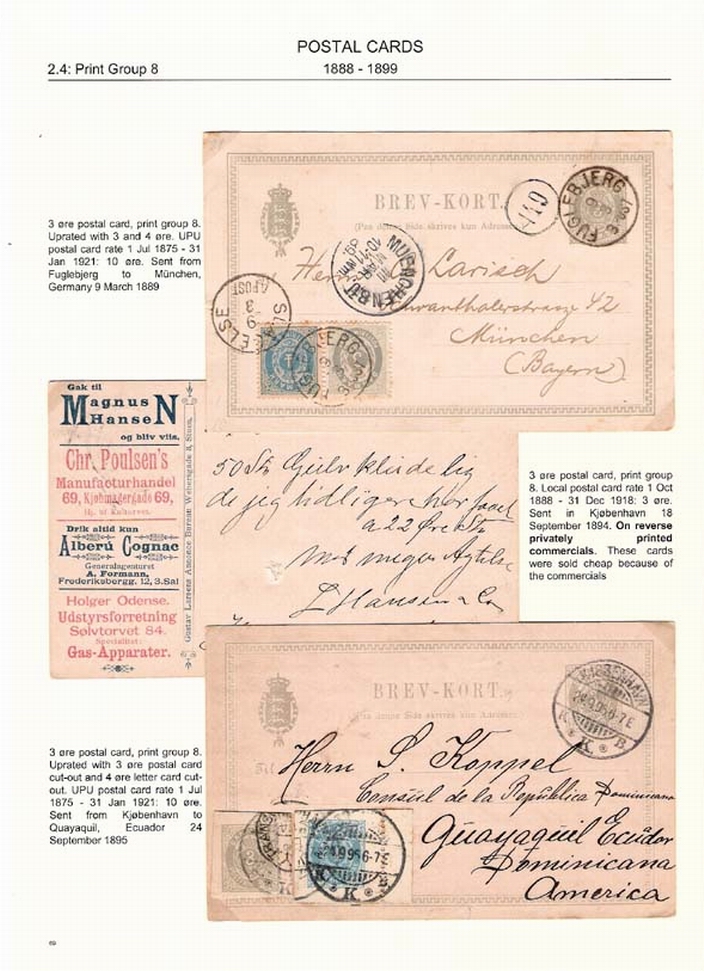 POSTAL CARDS
2.4: Print Group 8
1888 - 1899
3 øre postal card, print group 8.
Uprated with 3 and 4 øre. UPU
postal card rate 1 Jul 1875 - 31
Jan 1921: 10 øre. Sent from
Fuglebjerg to München,
Germany 9 March 1889
BREV-KORT.
(Paa denne Side skrives kun Adressen.)
FUGLEBJERG
Herrn Larisch
Schwanthalerstrasze 42
München
(Bayern)
MUENCHEN
SLAGELSE
FUGLEBJERG
Gak til
Magnus
HanseN
og bliv viis.
Chr. Poulsen's
Manufacturhandel
69, Kjøbmagergade 69,
Drik altid kun
Alberú Cognac
Generalagenturet
A. Formann,
Frederiksbergg. 12, 3.Sal
Holger Odense.
Udstyrsforretning
Sølvtorvet 84.
Specialitet:
Gas-Apparater.
Gustav Larsens Annonce Bureau
50 Gulvklude
de jeg tidligere har faaet
a 22 Øre Stk
med megen Agtelse
L Hansen & Co
3 øre postal card, print group
8. Local postal card rate 1 Oct
1888 - 31 Dec 1918: 3 øre.
Sent in Kjøbenhavn 18
September 1894. On reverse
privately printed
commercials. These cards
were sold cheap because of
the commercials
3 øre postal card, print group 8.
Uprated with 3 øre postal card
cut-out and 4 øre letter card cut-
out. UPU postal card rate 1 Jul
1875 - 31 Jan 1921: 10 øre.
Sent from Kjøbenhavn to
Quayaquil, Ecuador 24
September 1895
BREV-KORT.
(Paa denne Side skrives kun Adressen.)
KJØBENHAVN
24.9.95 6-7E
K. B.
Herrn S. Koppel
Consúl de la República Dominicana
Guayaquil Ecuador
Dominicana
America
24.9.95 6-7E
K
69